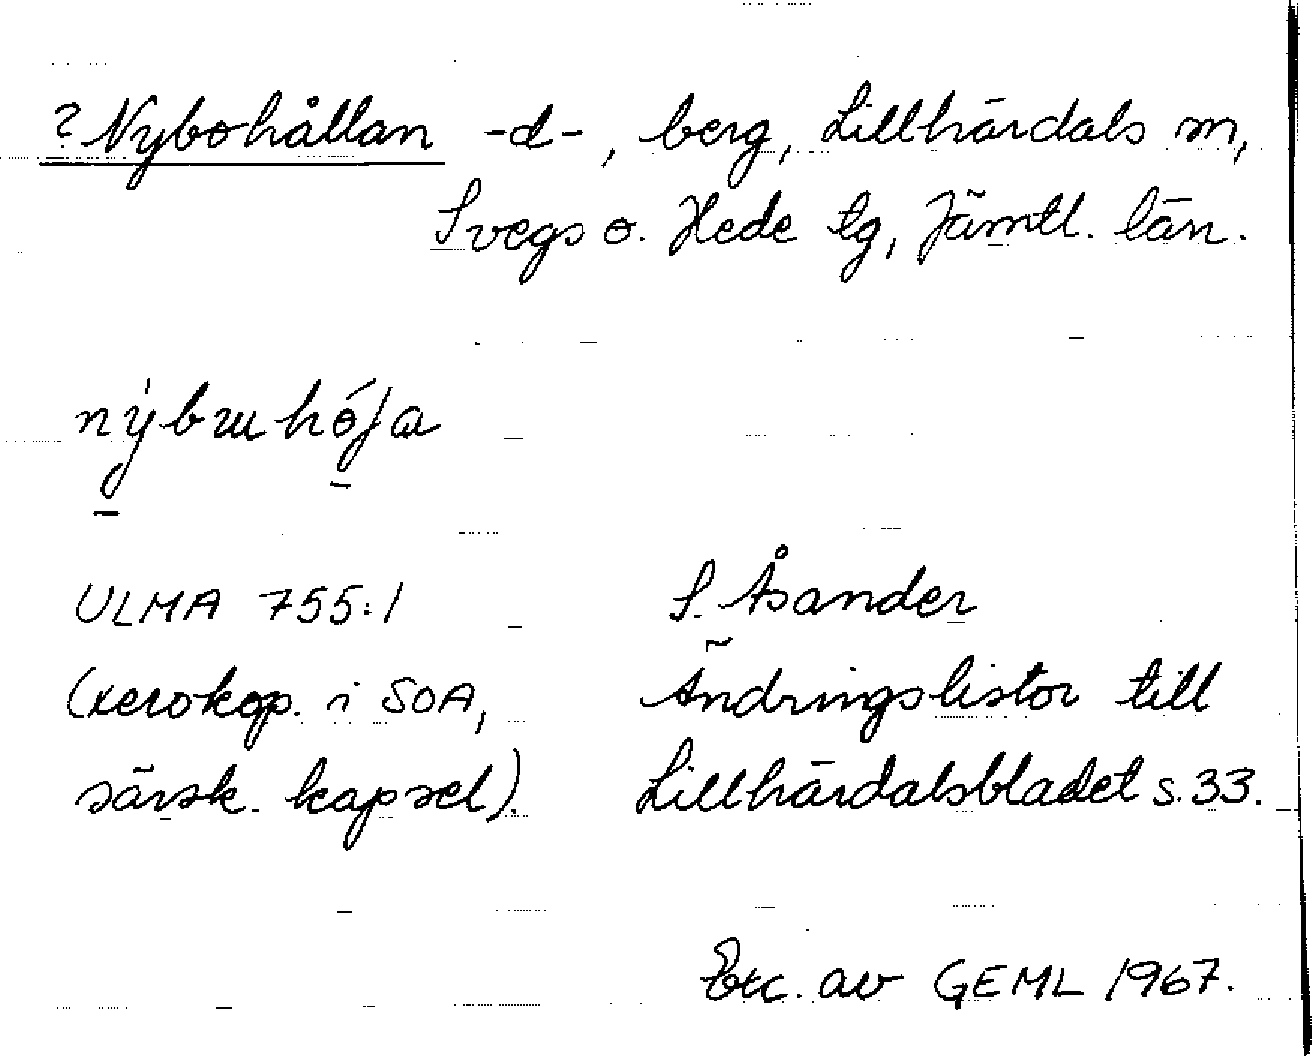 ? Nybohållan -d-, berg, Lillhärdals sn,
Svegs o. Hede tg, Jämtl. län.
ULMA 755:1
S. Åsander
(xerokop. i SOA,
Ändringslistor till
särsk. kapsel).
Lillhärdalsbladet s. 33.
Exc. av GEML 1967.